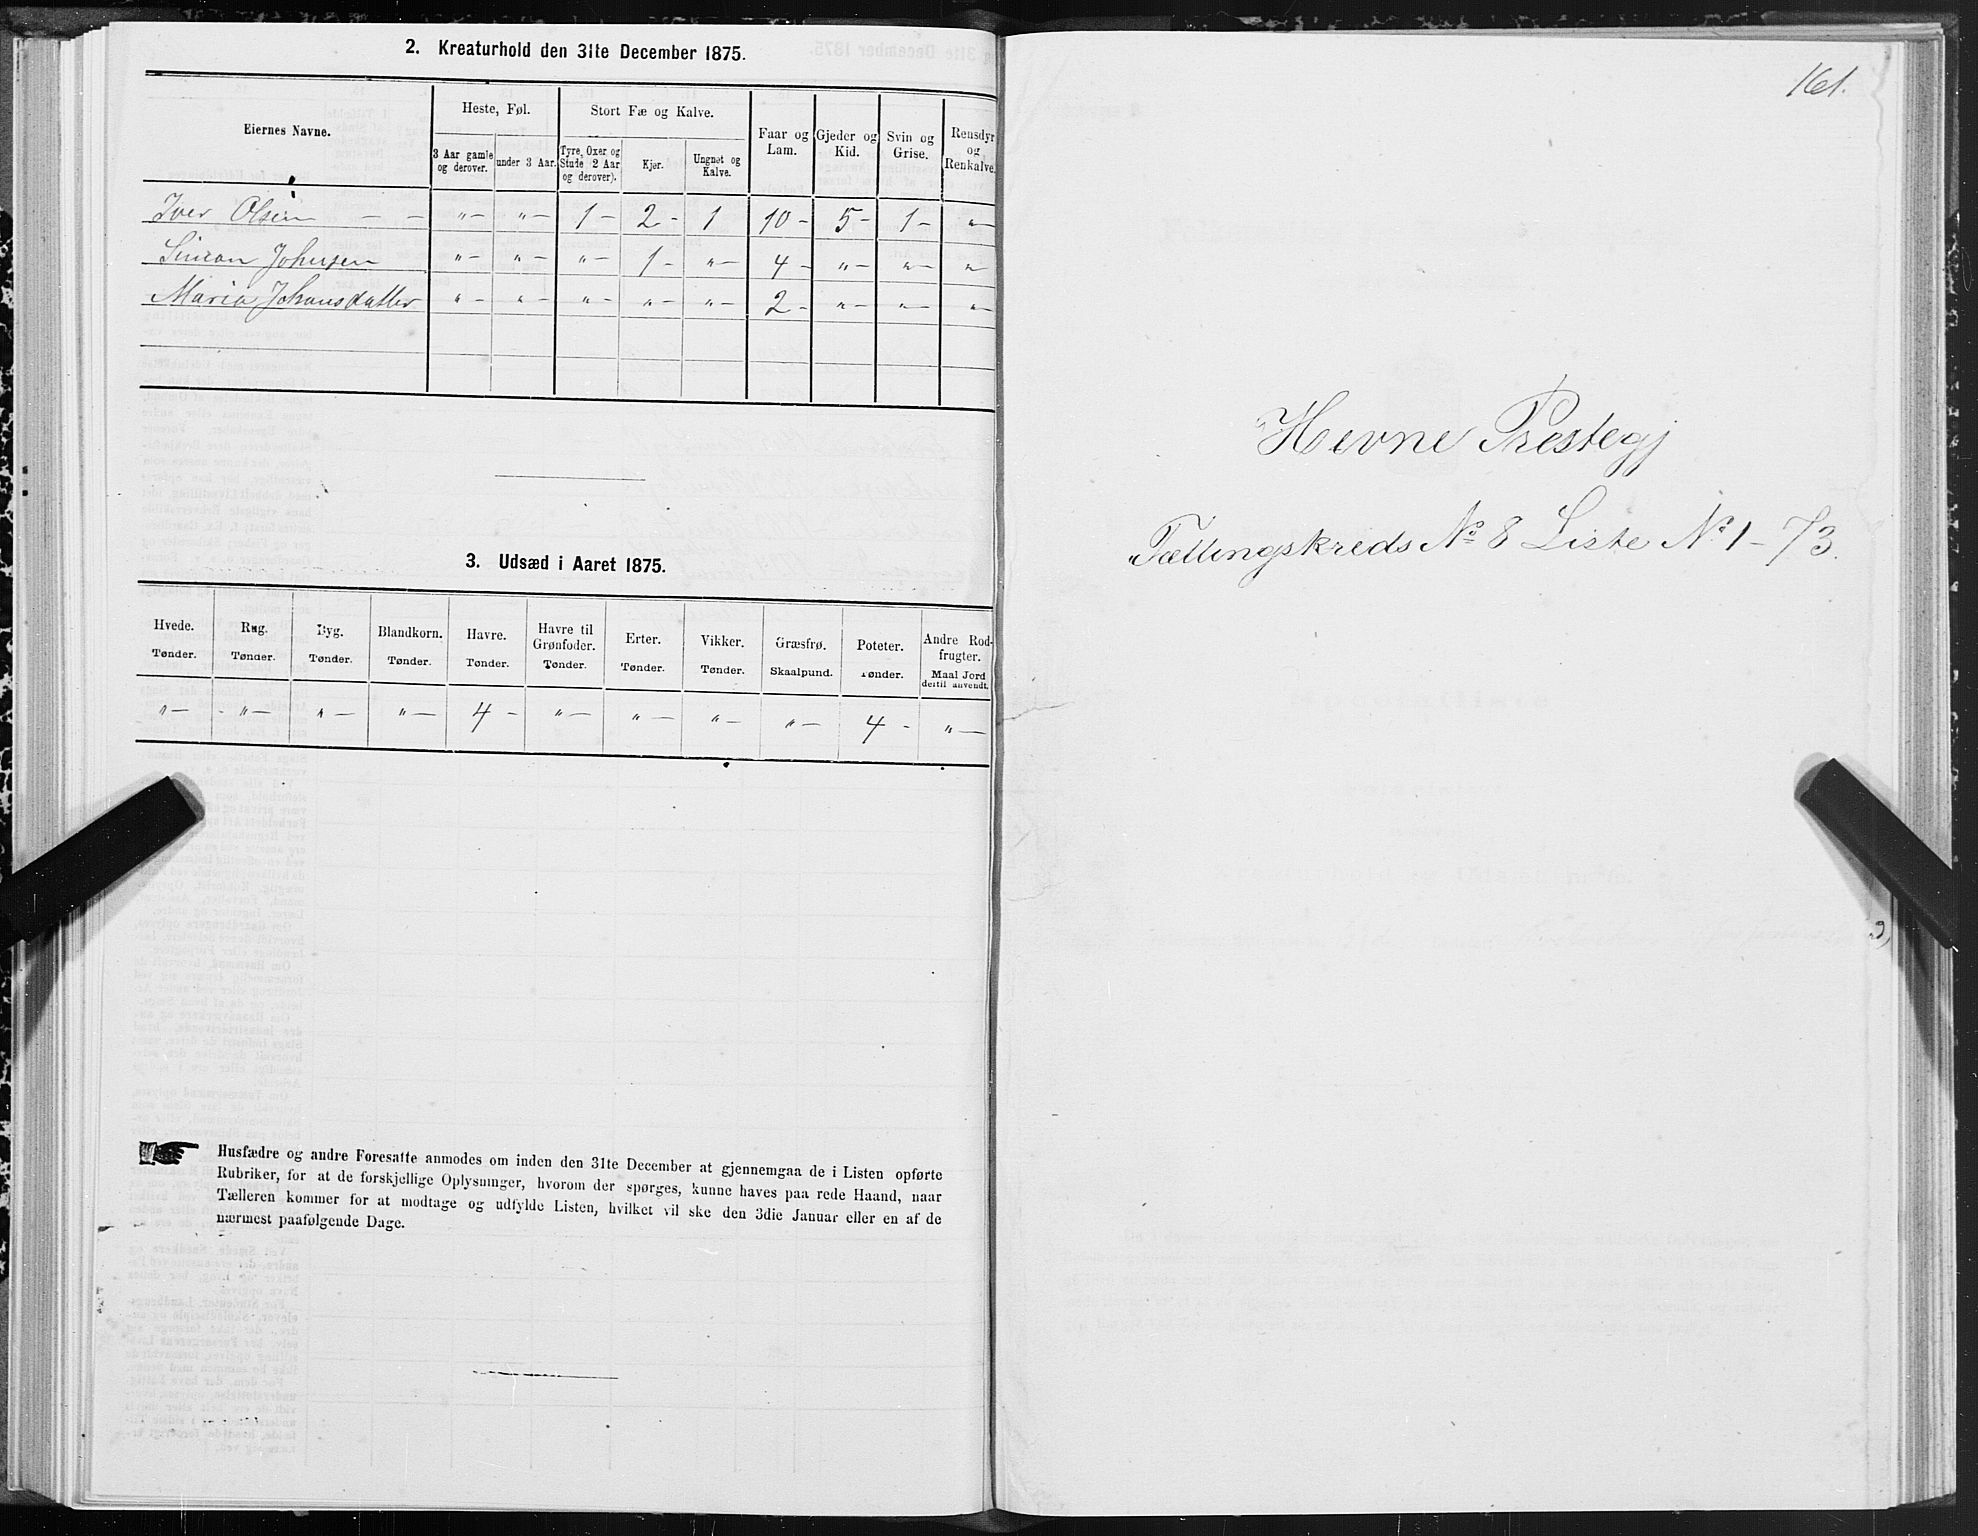 2. Kreaturhold den 31te December 1875.
Eiernes Navne. | Heste, Føl. | Stort Fæ og Kalve. | Faar og Lam. | Gjeder og Kid. | Svin og Grise. | Rensdyr og Renkalve.
3 Aar gamle og derover. | under 3 Aar. | Tyre, Oxer og Stude 2 Aar og derover). | Kjør. | Ungnøt og Kalve.
Iver Olsen — — | „ — | „ — | 1 - | 2 - | 1 | 10 - | 5 - | 1 - | „ —
Simon Johnsen | „ — | „ — | „ — | 1 - | „ — | 4 - | „ — | „ — | „ —
Maria Johansdatter | „ — | „ — | „ — | „ — | „ — | 2 - | „ — | „ — | „ —
3. Udsæd i Aaret 1875.
Hvede. | Rug. | Byg. | Blandkorn. | Havre. | Havre til Grønfoder. | Erter. | Vikker. | Græsfrø. | Poteter. | Andre Rodfrugter.
Tønder. | Tønder. | Tønder. | Tønder. | Tønder. | Tønder. | Tønder. | Tønder. | Skaalpund. | Tønder. | Maal Jord dertil anvendt.
„ — | „ — | „ — | „ — | 4 - | „ — | „ — | „ — | „ — | 4 - | „ —
Husfædre og andre Foresatte anmodes om inden den 31te December at gjennemgaa de i Listen opførte
Rubriker, for at de forskjellige Oplysninger, hvorom der spørges, kunne haves paa rede Haand, naar
Tælleren kommer for at modtage og udfylde Listen, hvilket vil ske den 3die Januar eller en af de
nærmest paafølgende Dage.
161.
Hevne Prestegj
Tællingskreds No 8 Liste No 1-73.